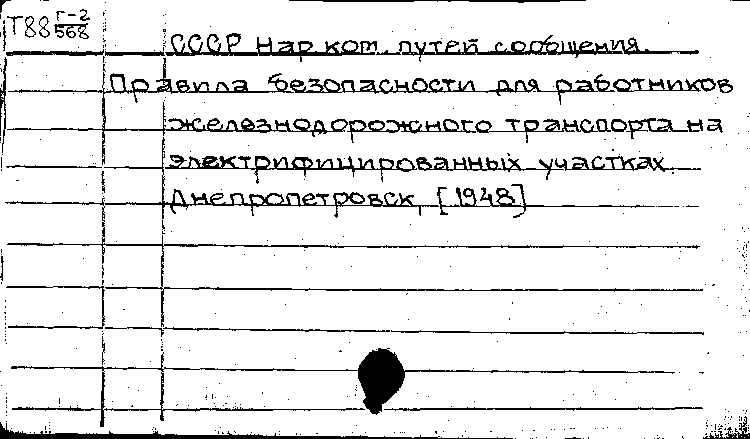 Т88 г-2/568
СССР Нар. ком. путей сообщения.
Правила безопасности для работников
железнодорожного транспорта на
электрифицированных участках.
Днепропетровск, [1948]